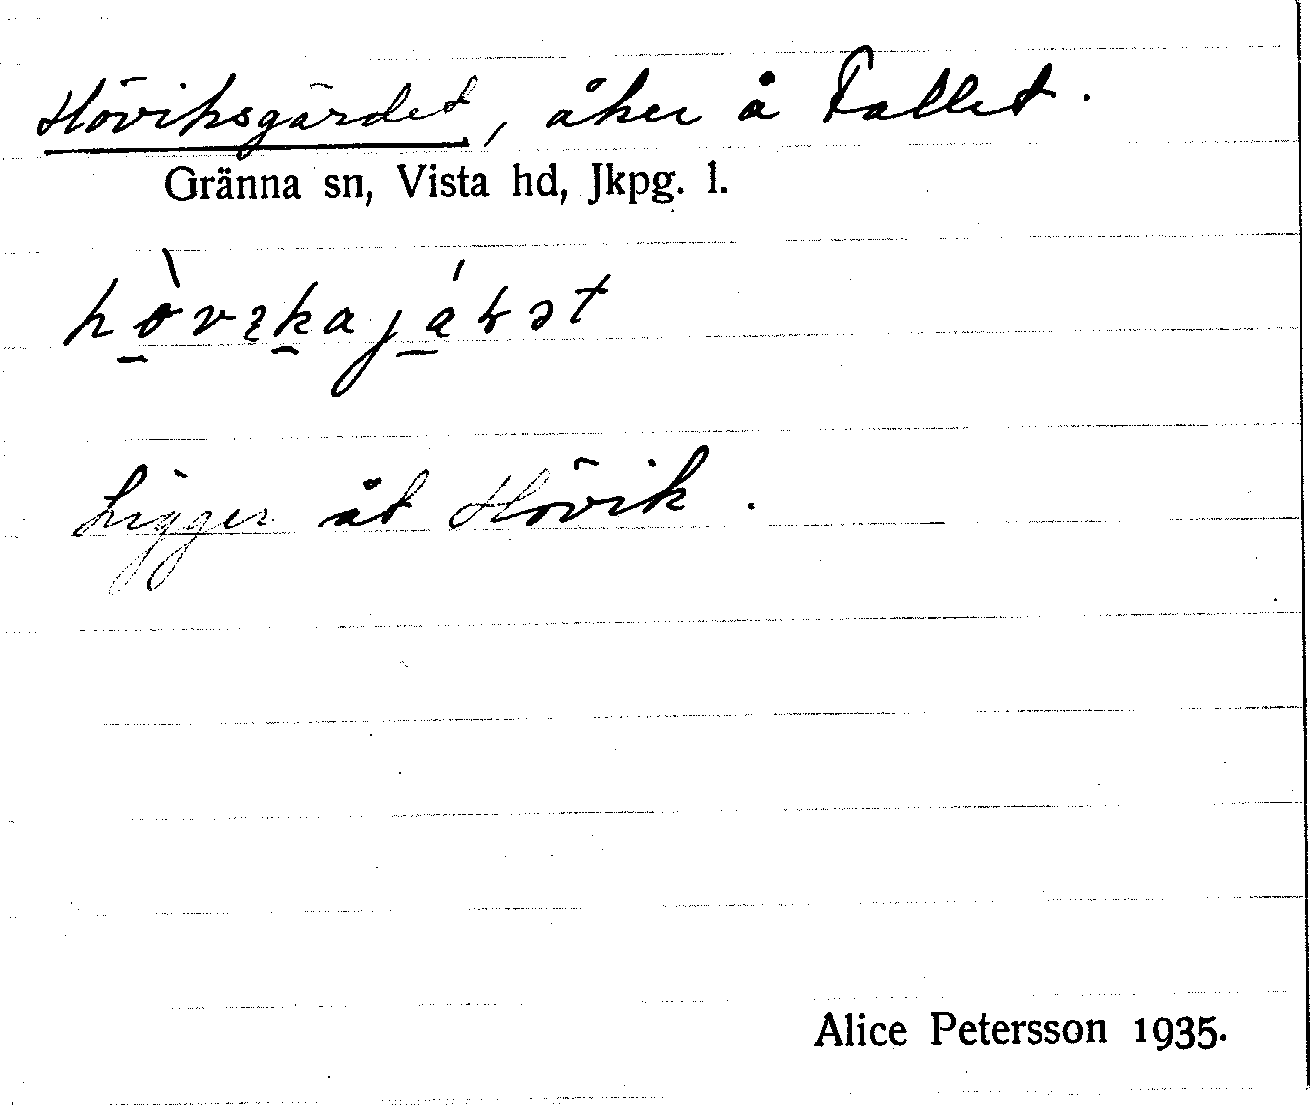 Höviksgärdet, åker å Fallet.
Gränna sn, Vista hd, Jkpg. l.
Ligger åt Hövik.
Alice Petersson 1935.